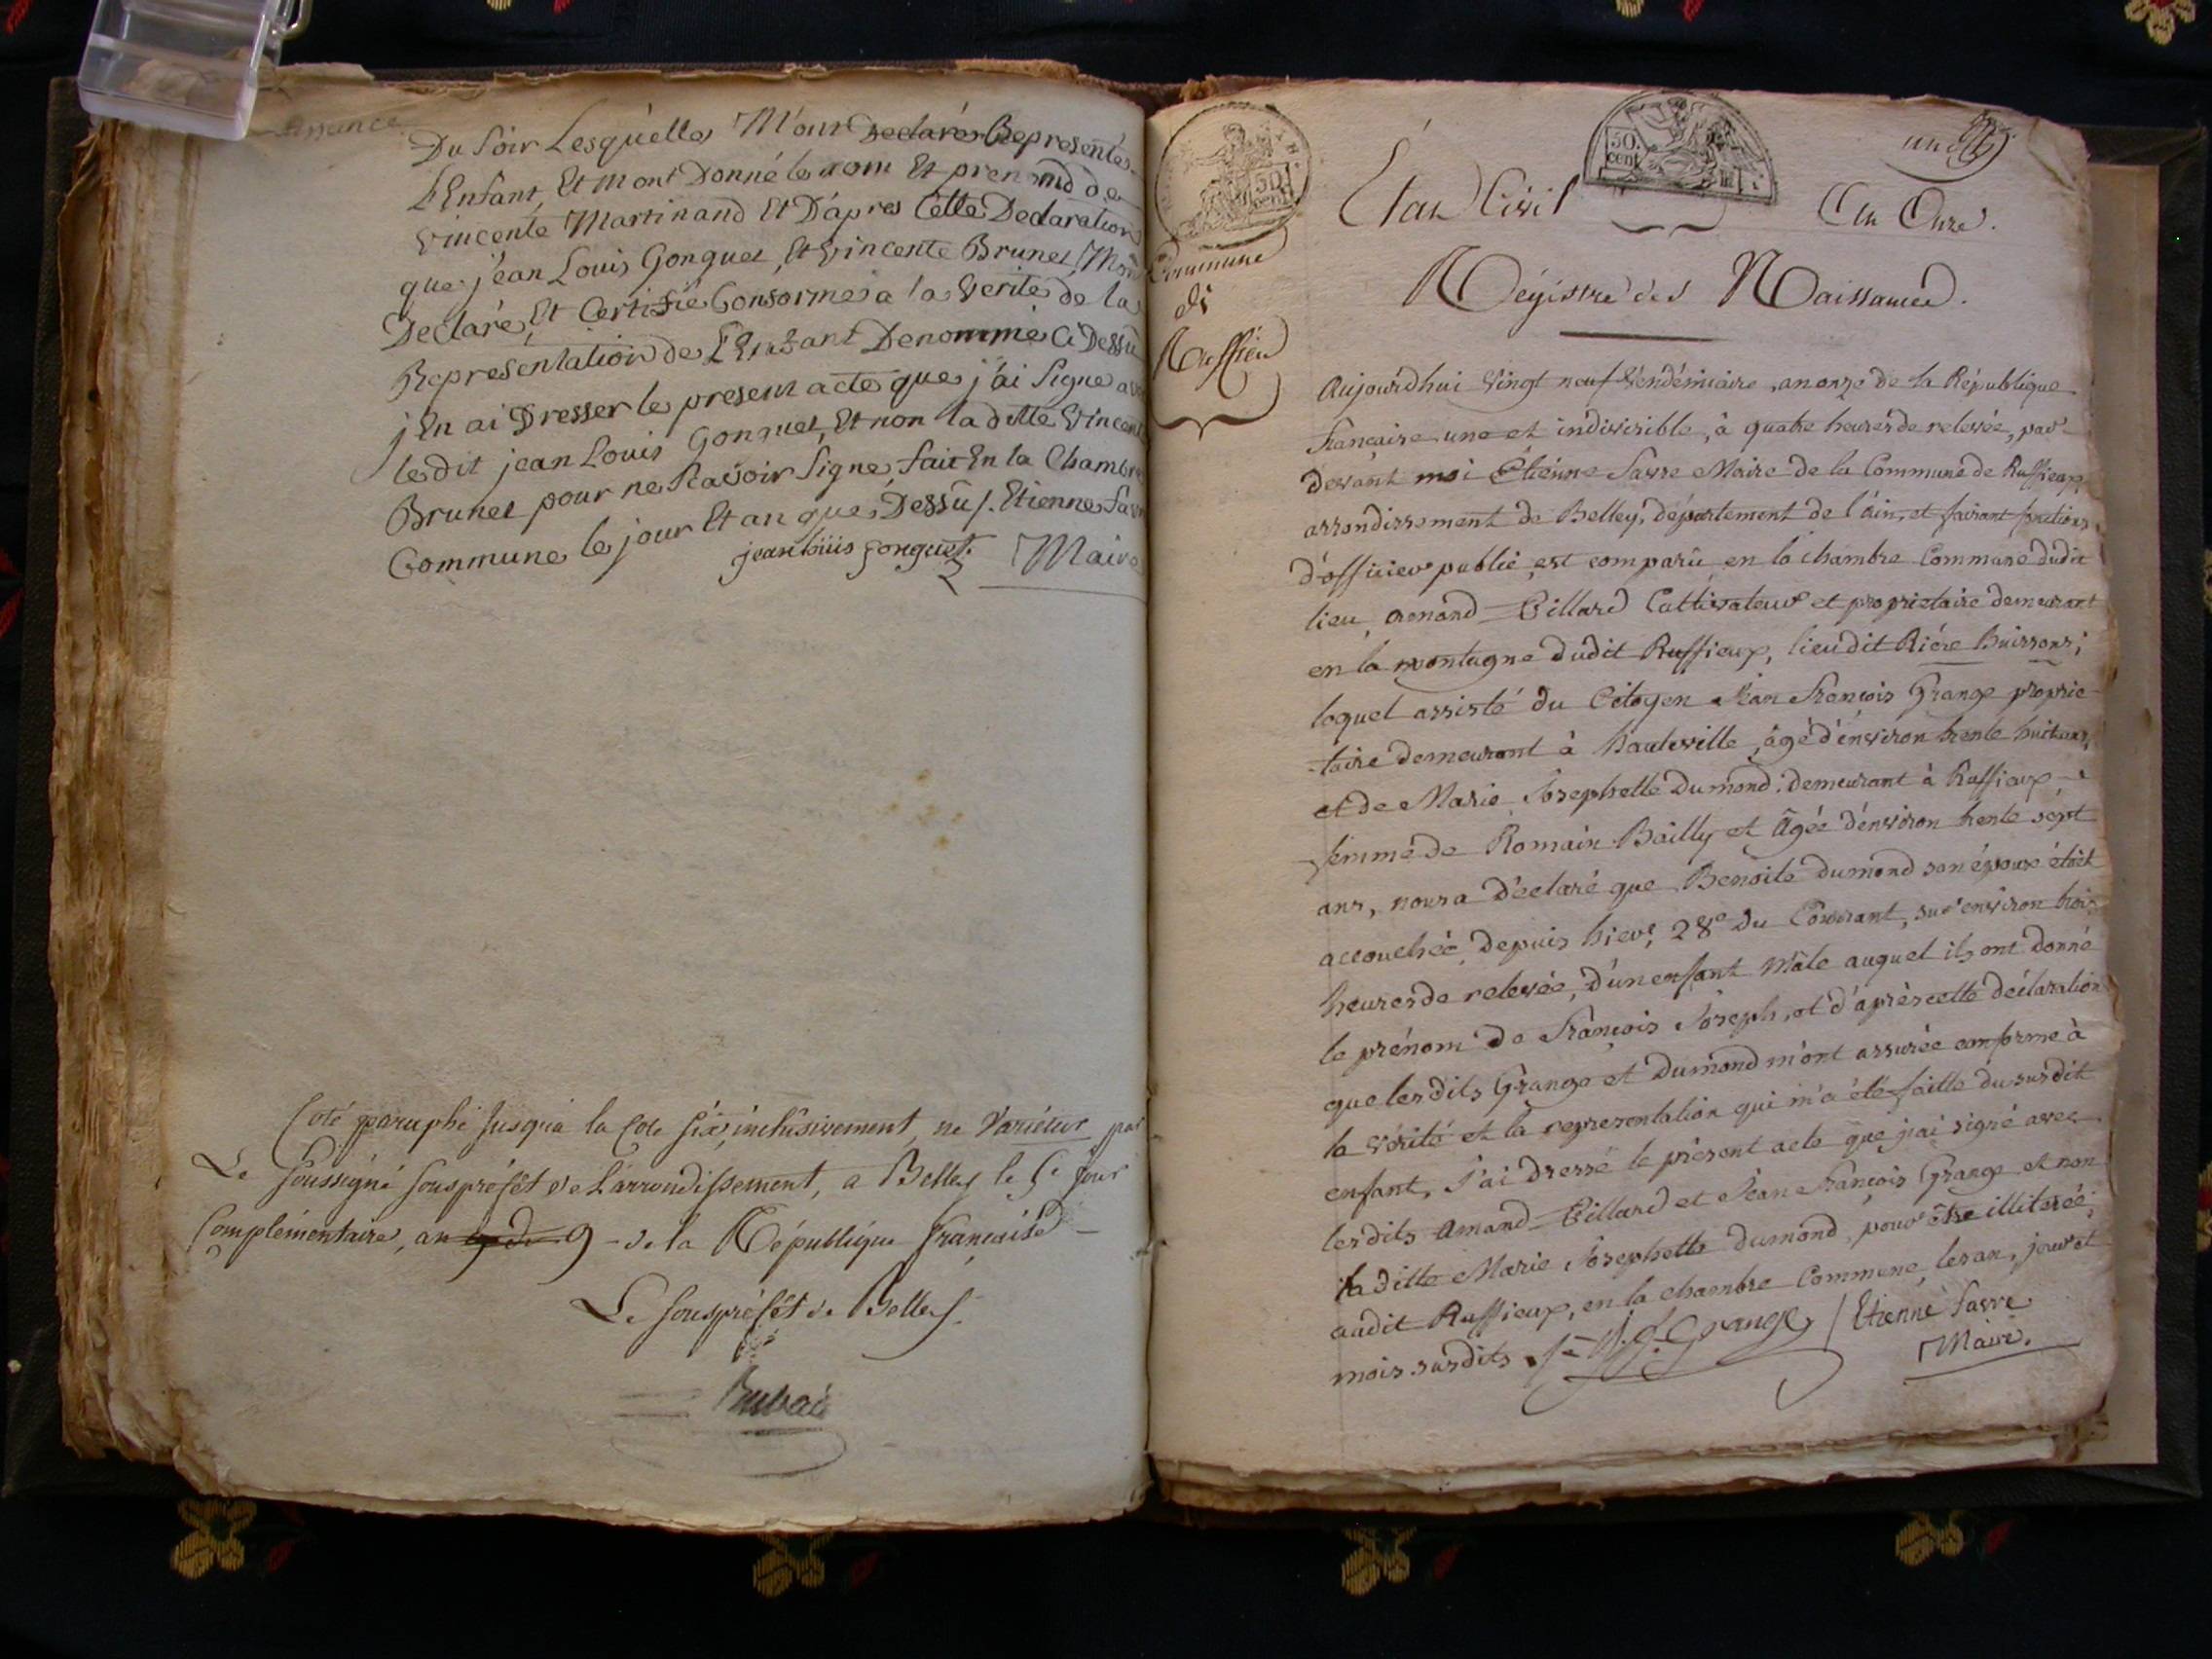 Du Soir Lesquelles M'ont declarés Representés
L'Enfant, Et mont Donné le nom Et prenomd de
Vincente Martinand Et D'apres Cette Declaration
que jean Louis Gonguet, Et Vincente Brunet, M'ont
Declaré, Et Certifié Conforme a la Verité de la
Representation de L'Enfant Denommé Ci Dessu
j'En ai Dresser le present acte que j'ai Signe av
ledit jean Louis Gonguet, Et non la ditte Vincent
Brunet pour ne Scavoir Signe, fait En la Chambre
Commune le jour Et an que Dessû /. Etienne Favre
jean louis gonguet. Maire
Coté paraphé jusqua la Cote six, inclusivement, ne Varietur par
Le Soussigné Souspréfêt de L'arrondissement, a Belley le 5e jour
Complémentaire, an 9 - de la République française -
Le Souspréfêt de Belley.
Commune
de
Ruffieu
50. cent.
50 cent
un
État Civil An Onze.
Régistre des Naissances.
Aujourdhui vingt neuf Vendémiaire, an onze de la République
française une et indivisible, à quatre heures de relevée, par
devant moi Étienne Favre Maire de la Commune de Ruffieux,
arrondissement de Belley, département de l'ain, et faisant fonctions
d'officier public, est comparû en la chambre Commune dudit
lieu, Amand Billard Cultivateur et propriétaire demeurant
en la montagne dudit Ruffieux, lieu dit Rière Buissons;
lequel assisté du Citoyen Jean François Grange proprie-
-taire demeurant à hauteville, âgé d'environ trente huit ans,
et de Marie Josephette Dumond, demeurant à Ruffieux
femme de Romain Bailly et âgée d'environ trente sept
ans, nous a déclaré que Benoite Dumond son épouse étoit
accouchée, depuis hier, 28e du Courant, sur environ trois
heures de relevée, d'un enfant mâle auquel ils ont donné
le prénom de François Joseph, et d'après cette déclaration
que lesdits Grange et Dumond m'ont assurée conforme à
la vérité et la representation qui m'a été faitte du susdit
enfant, J'ai dressé le présent acte que j'ai signé avec
lesdits Amand Billard et Jean François Grange et non
la ditte Marie Josephette Dumond, pour être illitérée;
audit Ruffieux, en la chambre Commune, les an, jour et
mois susdits. J. f. Grange / Etienne Favre
Maire.